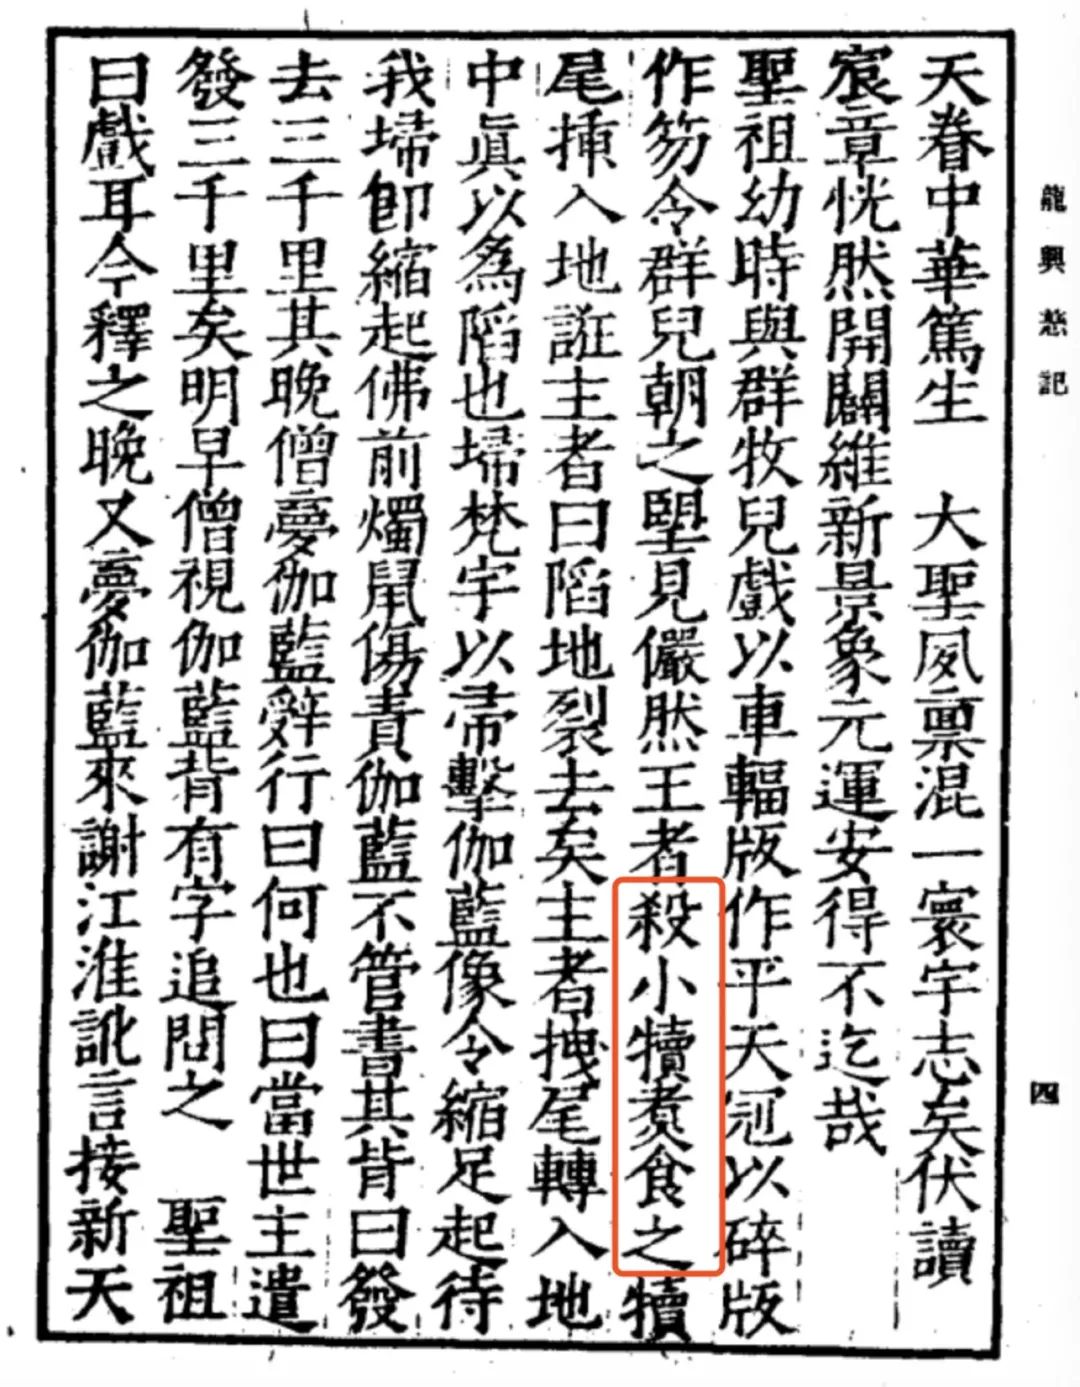 龍興慈記
四
天眷中華篤生　大聖夙禀混一寰宇志矣伏讀
宸章恍然開闢維新景象元運安得不迄哉
聖祖幼時與群牧兒戲以車輻版作平天冠以碎版
作笏令群兒朝之朢見儼然王者殺小犢煑食之犢
尾揷入地誑主者曰陷地裂去矣主者拽尾轉入地
中眞以為陷也埽梵宇以帚擊伽藍像令縮足起待
我埽卽縮起佛前燭鼠傷責伽藍不管書其背曰發
去三千里其晚僧夢伽藍辤行曰何也曰當世主遣
發三千里矣明早僧視伽藍背有字追問之　聖祖
曰戲耳今釋之晚又夢伽藍來謝江淮訛言接新天